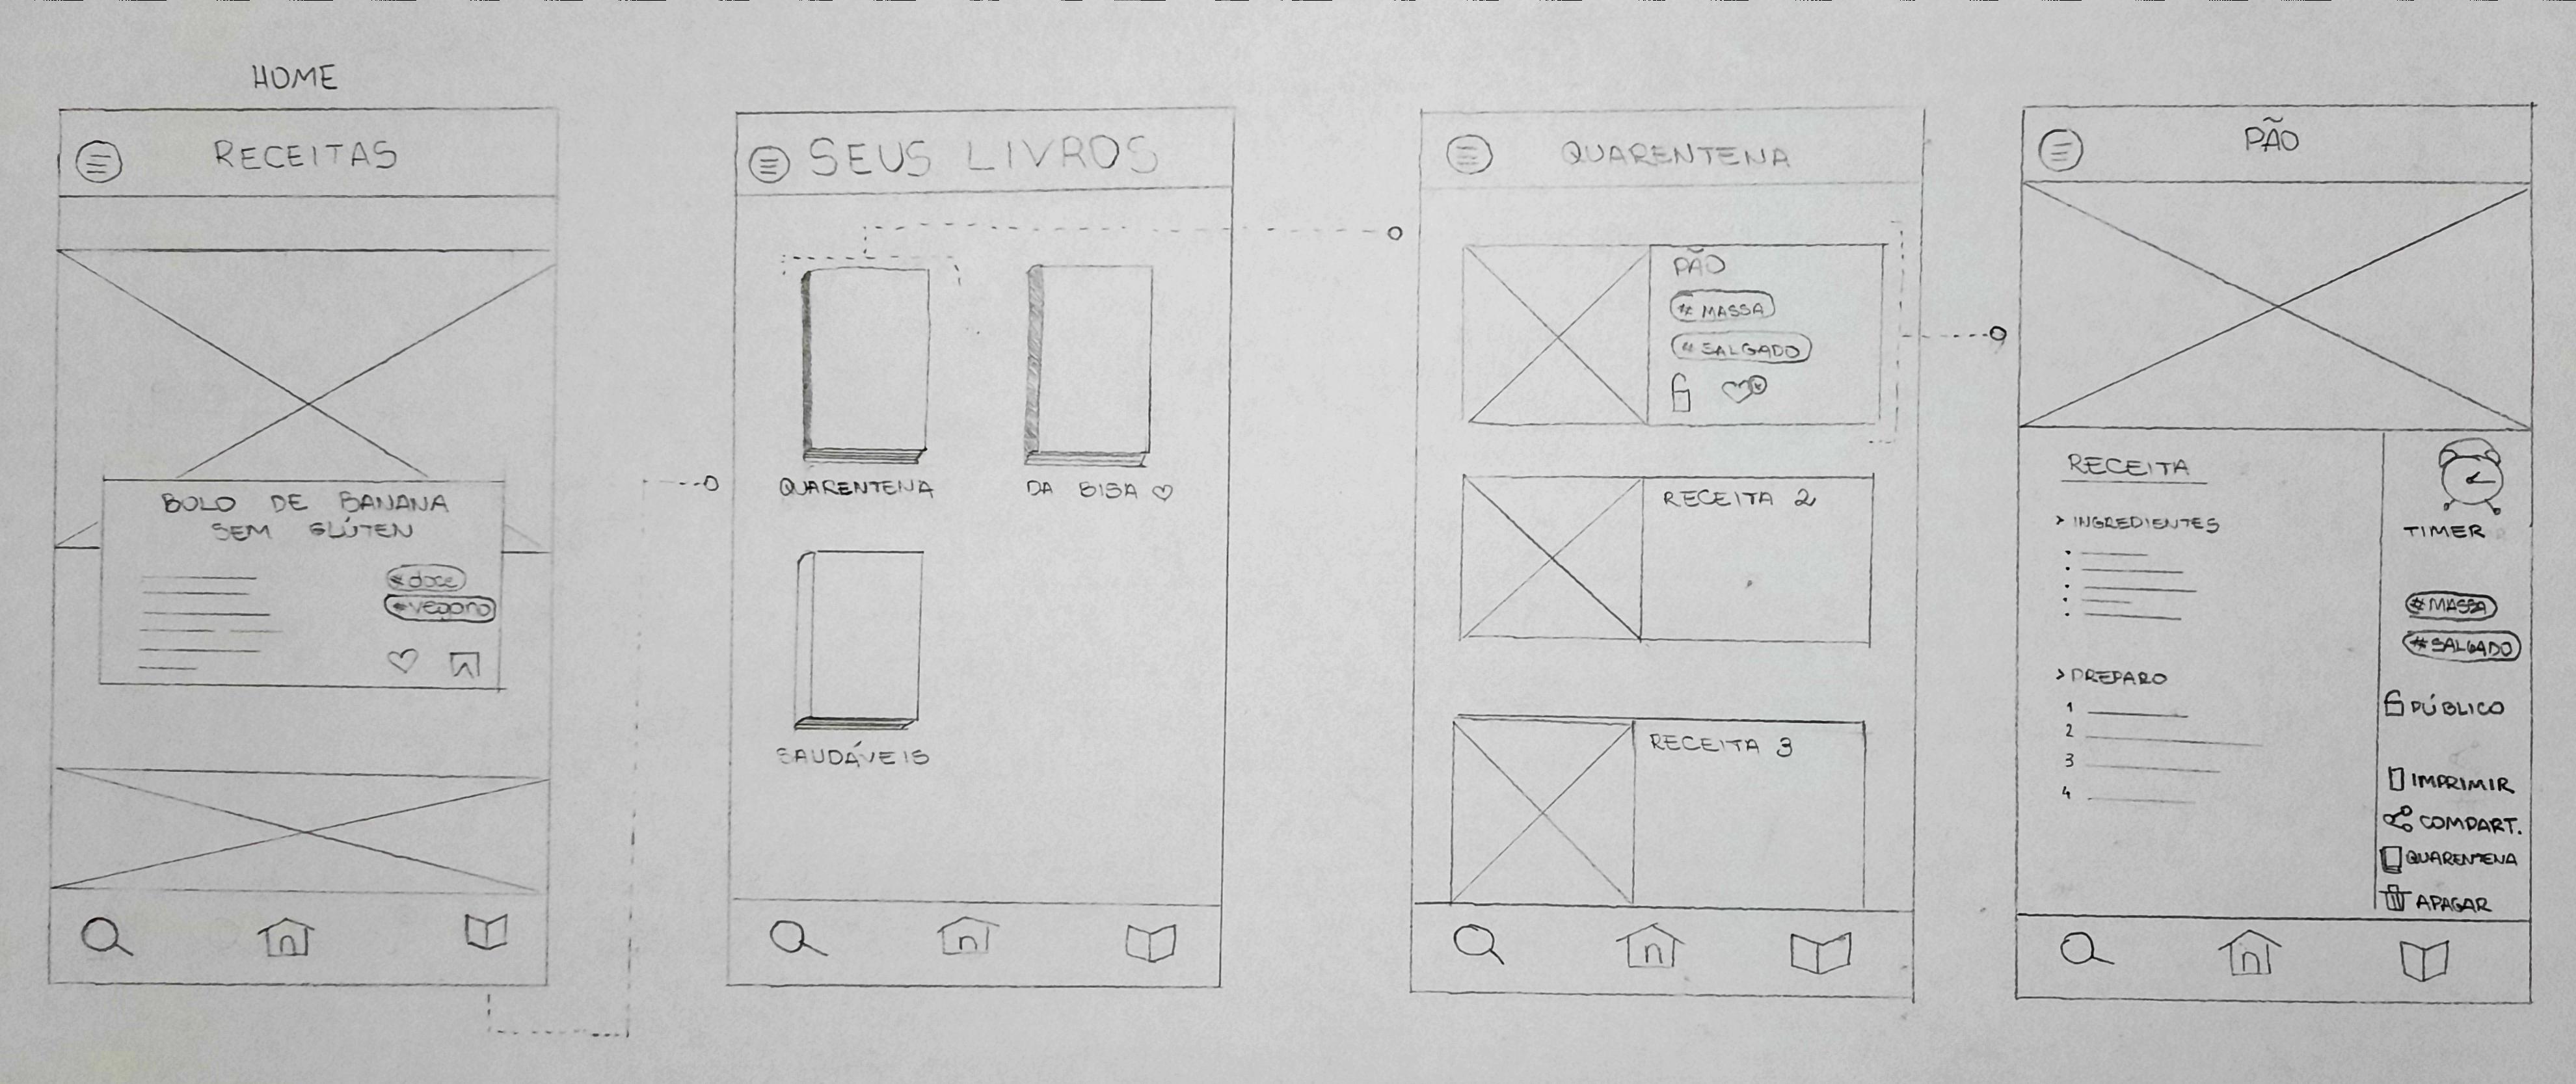 HOME
RECEITAS
BOLO DE BANANA
SEM GLÚTEN
#doce
#vegano
SEUS LIVROS
QUARENTENA
DA BISA ♡
SAUDÁVEIS
QUARENTENA
PÃO
# MASSA
# SALGADO
RECEITA 2
RECEITA 3
PÃO
RECEITA
> INGREDIENTES
> PREPARO
1
2
3
4
TIMER
#MASSA
#SALGADO
PÚBLICO
IMPRIMIR
COMPART.
QUARENTENA
APAGAR